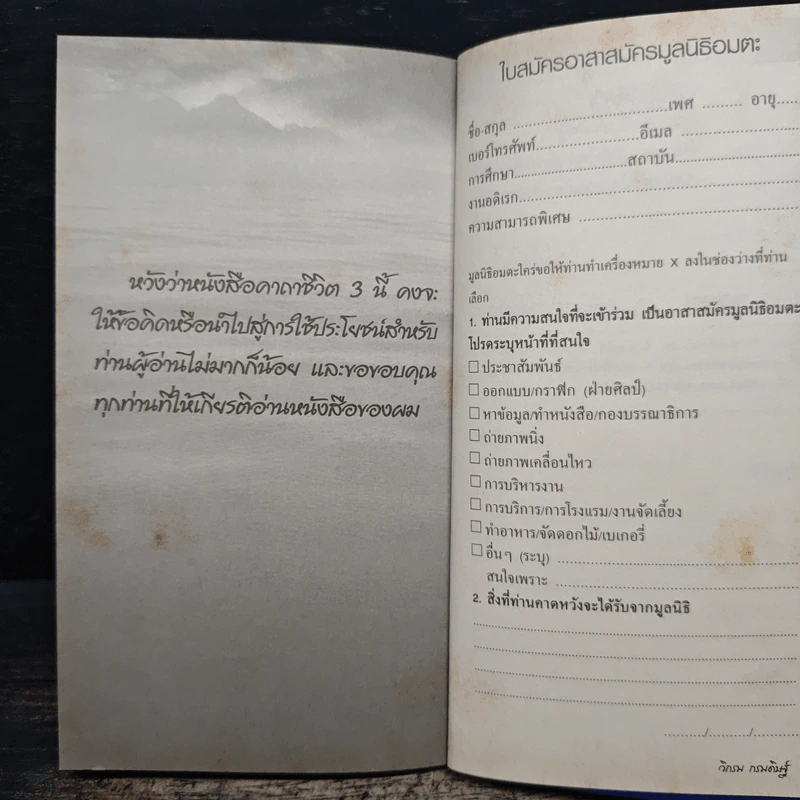 หวังว่าหนังสือคาถาชีวิต 3 นี้ คงจะ
ให้ข้อคิดหรือนำไปสู่การใช้ประโยชน์สำหรับ
ท่านผู้อ่านไม่มากก็น้อย และขอขอบคุณ
ทุกท่านที่ให้เกียรติอ่านหนังสือของผม
ใบสมัครอาสาสมัครมูลนิธิอมตะ
ชื่อ-สกุล ........................................เพศ ......... อายุ......
เบอร์โทรศัพท์..........................อีเมล ..........................
การศึกษา............................สถาบัน............................
งานอดิเรก............................................................
ความสามารถพิเศษ ................................................
มูลนิธิอมตะใคร่ขอให้ท่านทำเครื่องหมาย X ลงในช่องว่างที่ท่าน
เลือก
1. ท่านมีความสนใจที่จะเข้าร่วม เป็นอาสาสมัครมูลนิธิอมตะ
โปรดระบุหน้าที่ที่สนใจ
☐ ประชาสัมพันธ์
☐ ออกแบบ/กราฟิก (ฝ่ายศิลป์)
☐ หาข้อมูล/ทำหนังสือ/กองบรรณาธิการ
☐ ถ่ายภาพนิ่ง
☐ ถ่ายภาพเคลื่อนไหว
☐ การบริหารงาน
☐ การบริการ/การโรงแรม/งานจัดเลี้ยง
☐ ทำอาหาร/จัดดอกไม้/เบเกอรี่
☐ อื่นๆ (ระบุ) ................................................
สนใจเพราะ ................................................
2. สิ่งที่ท่านคาดหวังจะได้รับจากมูลนิธิ
........../........../..........
วิกรม กรมดิษฐ์